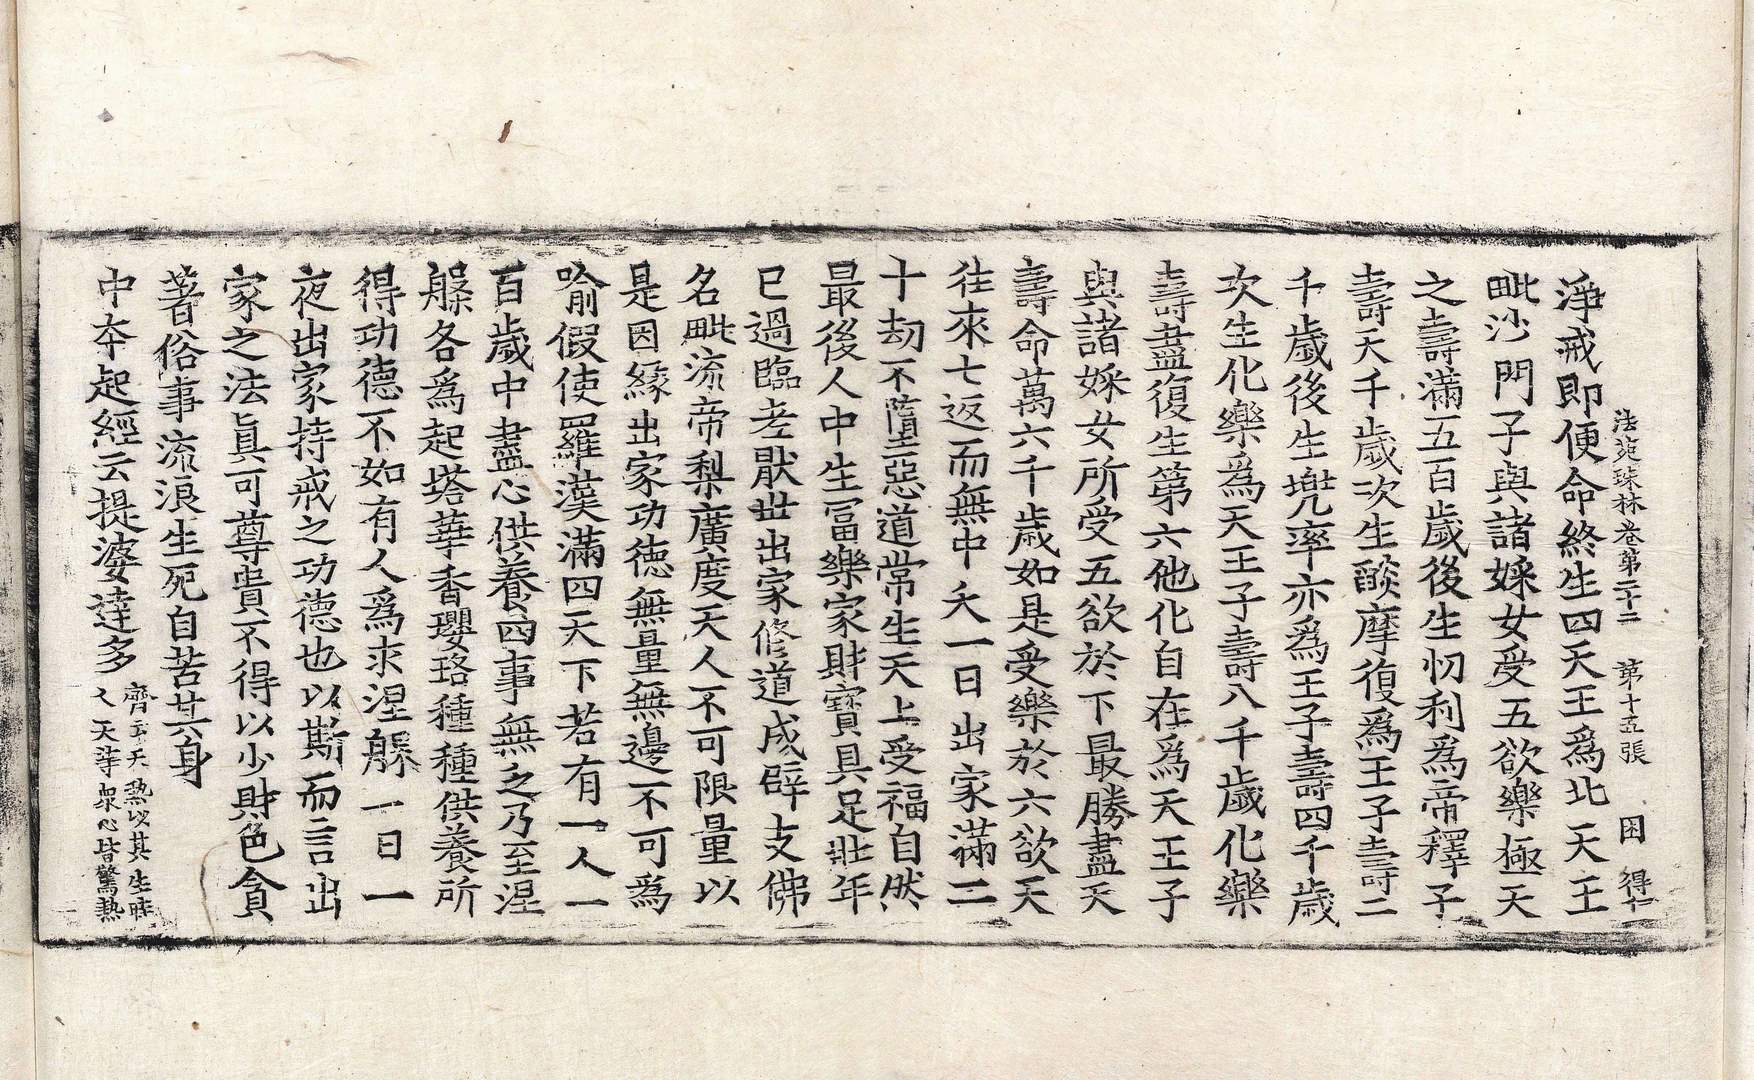 法苑珠林卷第二十二 第十五張 困 得仁
淨戒即便命終生四天王為北天王
毗沙門子與諸婇女受五欲樂極天
之壽滿五百歲後生忉利為帝釋子
壽天千歲次生燄摩復為王子壽二
千歲後生兠率亦為王子壽四千歲
次生化樂為天王子壽八千歲化樂
壽盡復生第六他化自在為天王子
與諸婇女所受五欲於下最勝盡天
壽命萬六千歲如是受樂於六欲天
往來七返而無中夭一日出家滿二
十劫不墮惡道常生天上受福自然
最後人中生冨樂家財寶具足壯年
已過臨老猒世出家修道成辟支佛
名毗流帝梨廣度天人不可限量以
是因緣出家功德無量無邊不可為
喻假使羅漢滿四天下若有一人一
百歲中盡心供養四事無乏乃至涅
槃各為起塔華香瓔珞種種供養所
得功德不如有人為求涅槃一日一
夜出家持戒之功德也以斯而言出
家之法真可尊貴不得以少財色貪
著俗事流浪生死自苦其身
中本起經云提婆達多
齊云天熱以其生時
人天等衆心皆驚熱